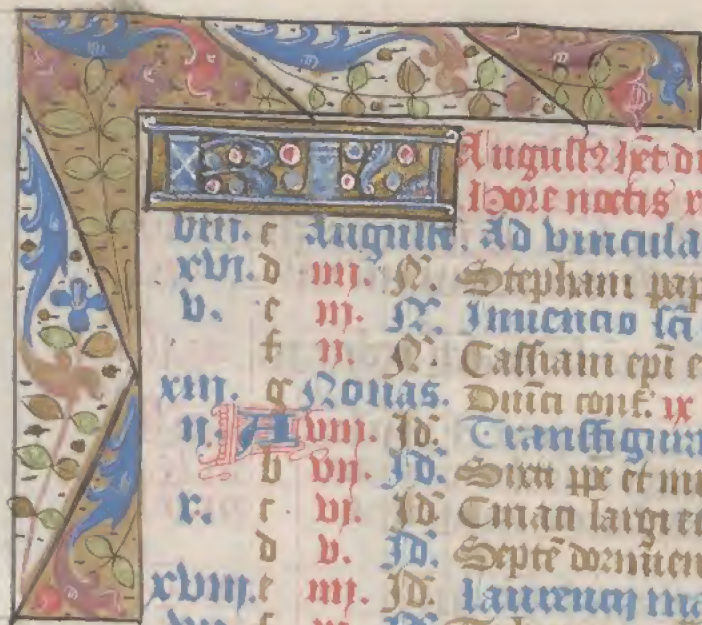 KL Augustꝰ hēt di
Hore noctis
viii. c Augusti. Ad vincula
xvi. d iiij. N. Stephani pap
v. e iij. N. Inuencio sci
f ij. N. Cassiani epi e
xiii. g Nonas. conf. ix
ij. A viij. Id. Transfigura
b vij. Id. Sixti pp et
x. c vj. Id. Ciriaci largi et
d v. Id. Septē dormien
xviii. e iiij. Id. Laurencij ma